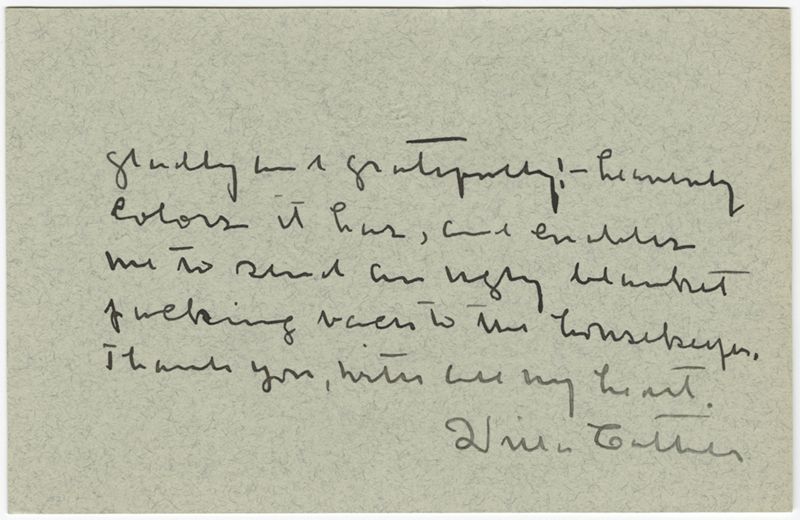 gladly and gratefully! - heavenly
colors it has, and enables
me to send an ugly blanket
packing back to the housekeeper.
Thank you, with all my heart.
Willa Cather